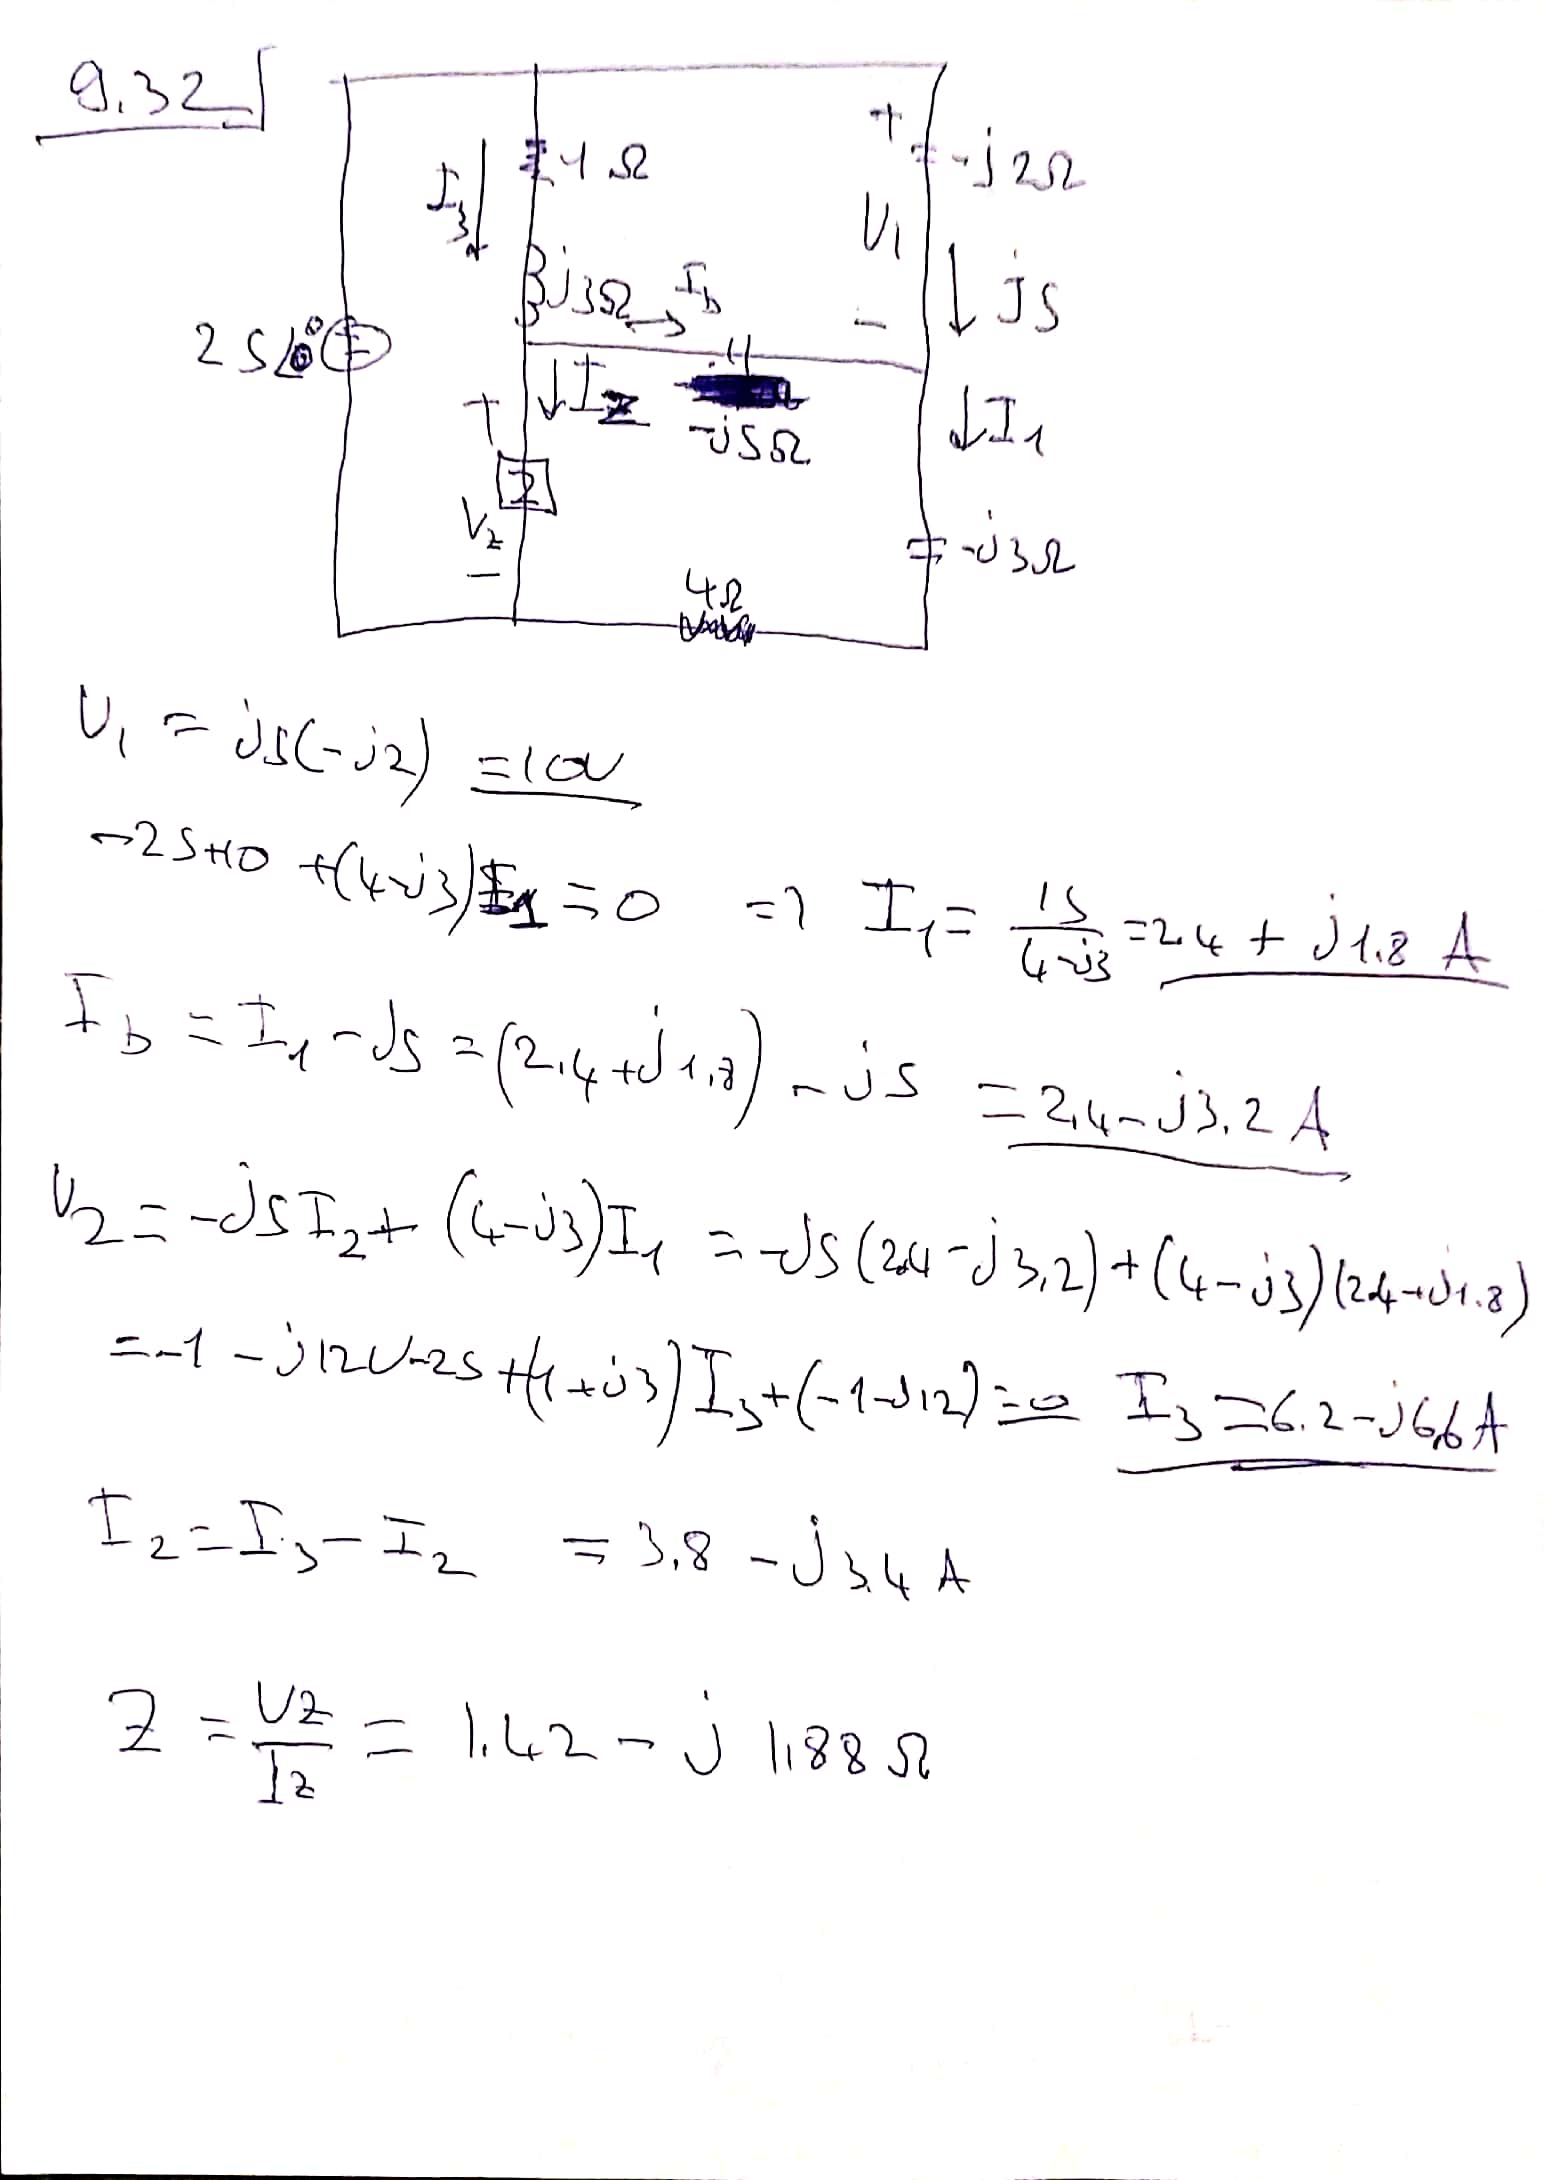 9.32
1Ω
+
-j2Ω
I3
V1
j3Ω
Ib
-
j5
25∠0°
+
IZ
-j5Ω
I1
Z
VZ
-j3Ω
-
4Ω
V1 = j5(-j2) = 10V
-25+10 +(4-j3)I1 = 0 => I1 = 15/(4-j3) = 2.4 + j1.8 A
Ib = I1 - j5 = (2.4+j1.8) - j5 = 2.4-j3.2 A
VZ = -j5I2+ (4-j3)I1 = -j5(2.4-j3.2)+(4-j3)(2.4+j1.8)
= -1 - j12V -25+(1+j3)I3+(-1-j12)=0 I3=6.2-j6.6A
I2 = I3 - I2 = 3.8 - j3.4 A
Z = VZ/IZ = 1.42 - j 1.88 Ω